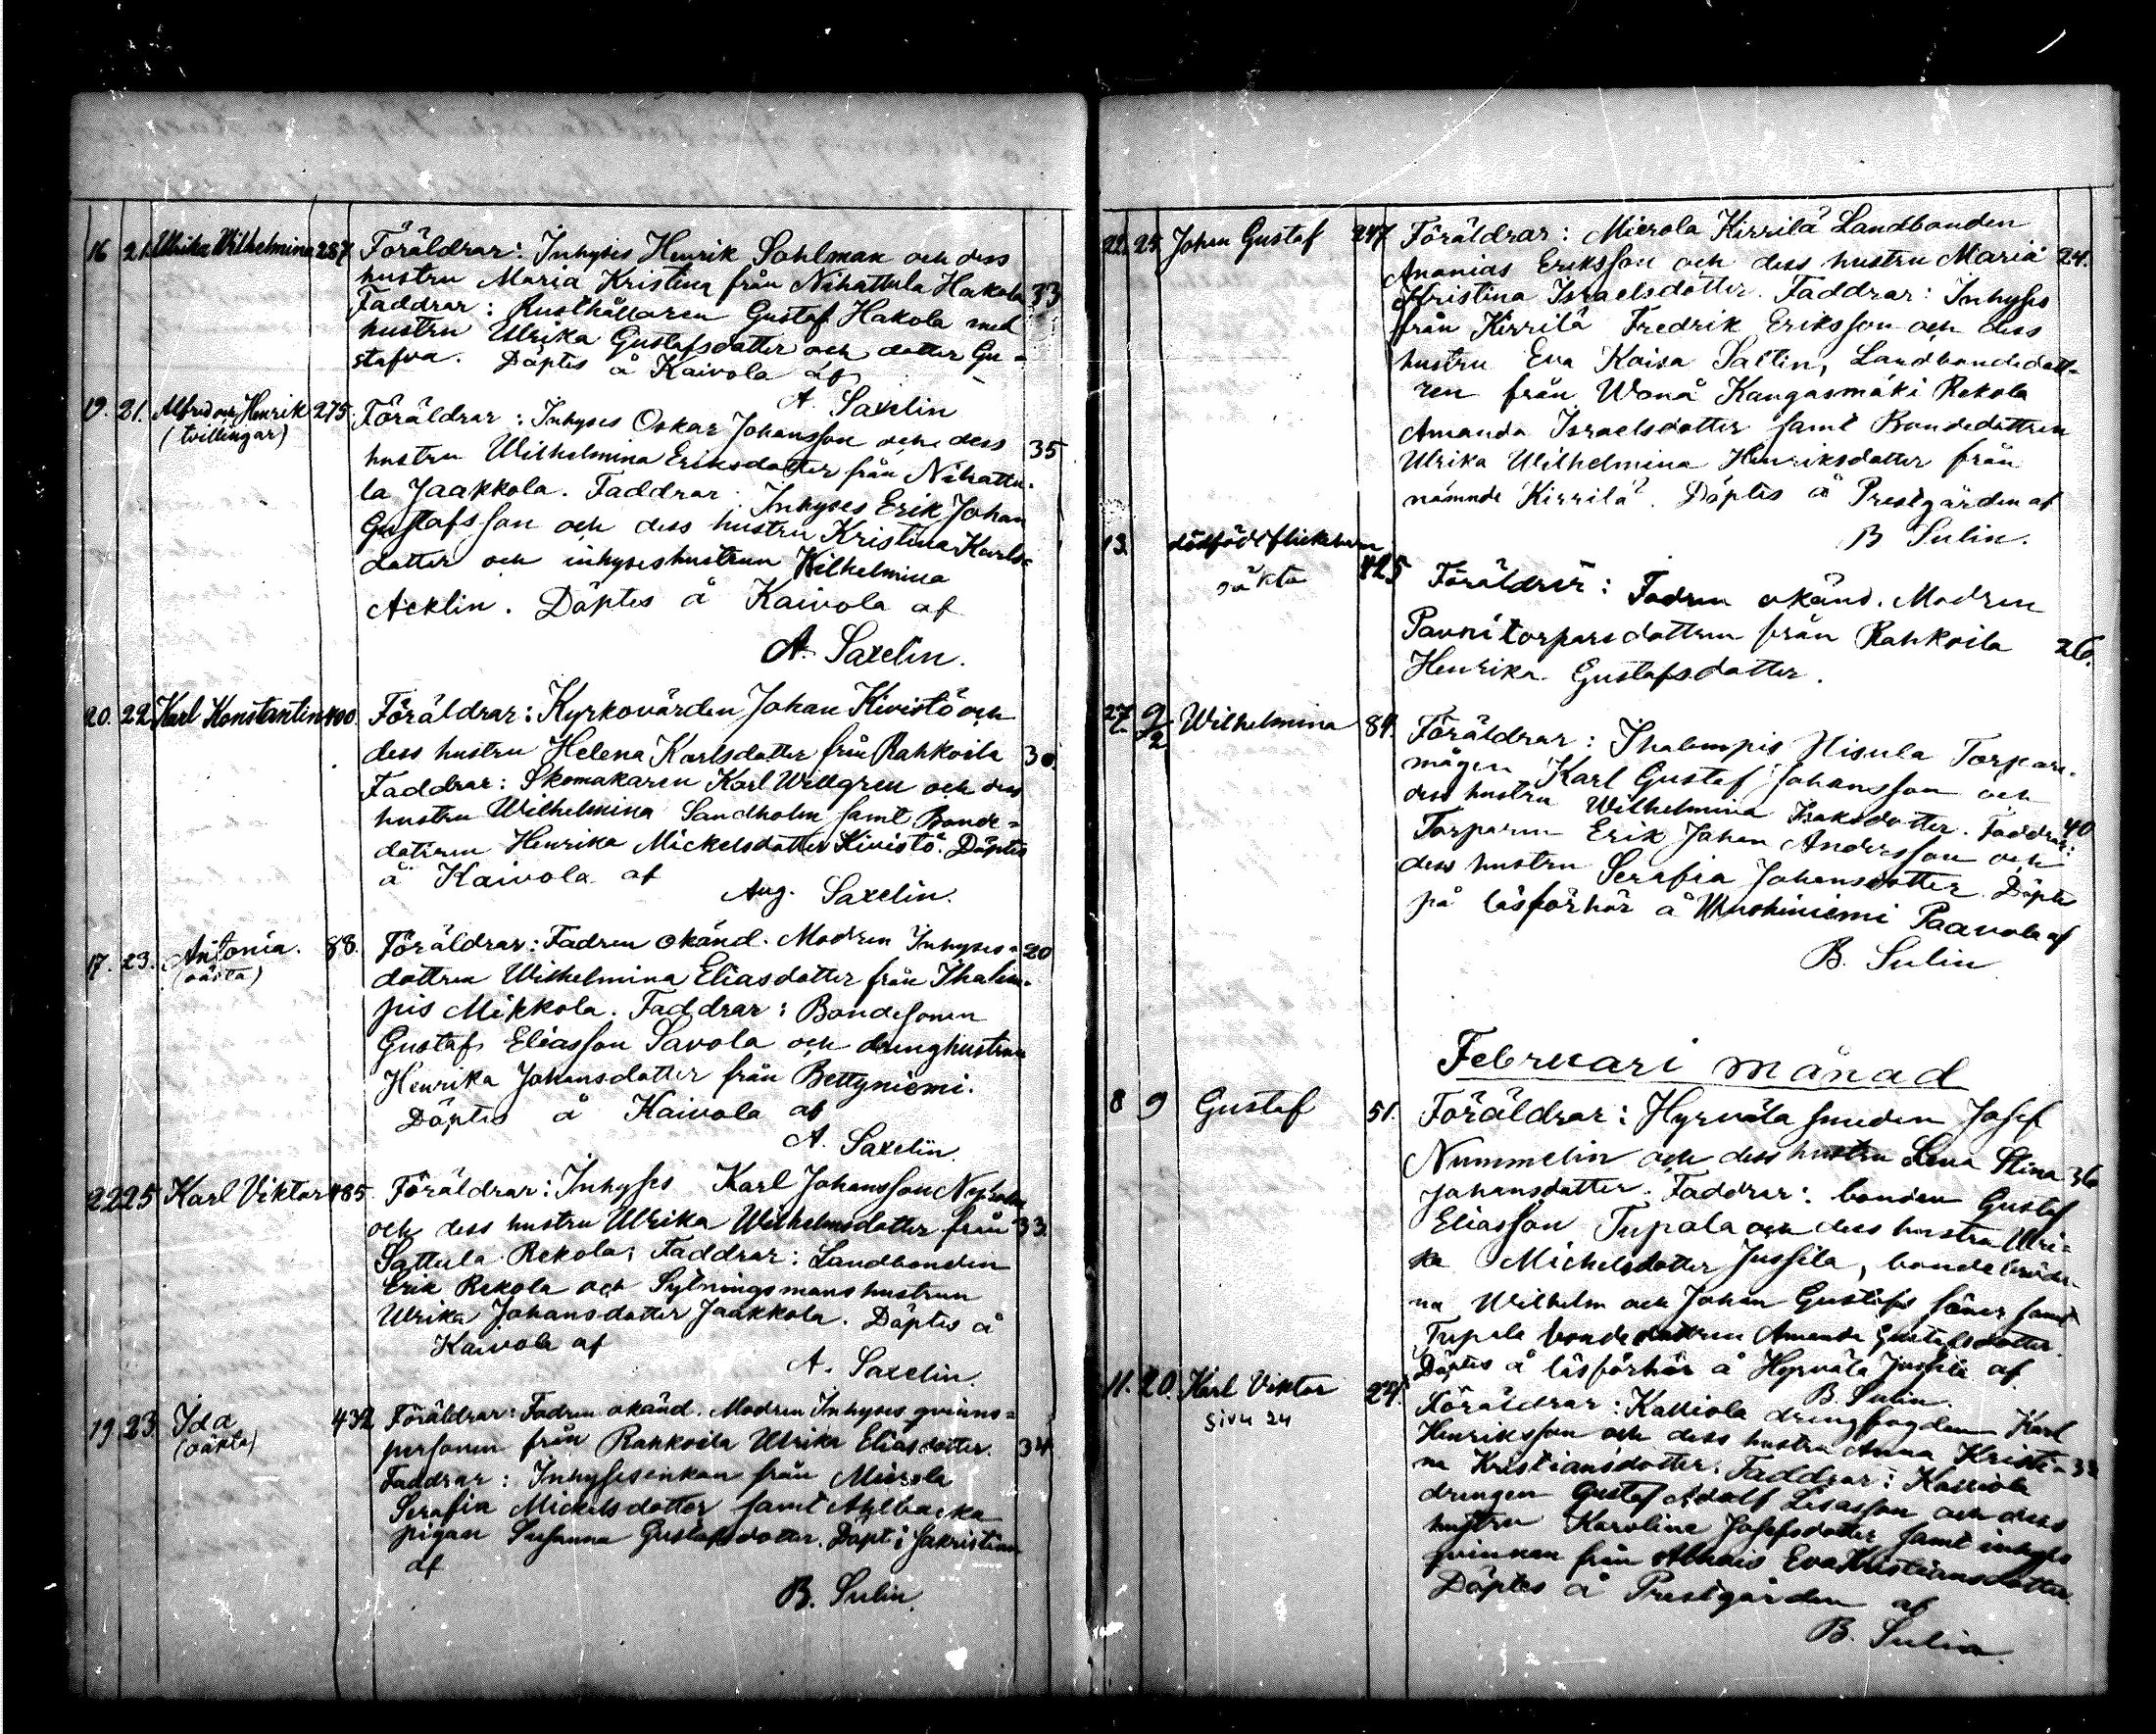 16 21. Ulrika Wilhelmina 287. Föräldrar: Inhyses Henrik Sahlman och dess
hustru Maria Kristina från Nihattula Hakola 33
Faddrar: Rusthållaren Gustaf Hakola med
hustru Ulrika Gustafsdotter och dotter Gu-
stafva. Döptes å Kaivola af
A. Saxelin
19. 21. Alfred och Henrik 275. Föräldrar: Inhyses Oskar Johansson och dess
(tvillingar) hustru Wilhelmina Eriksdotter från Nihattu- 35
la Jaakkola. Faddrar: Inhyses Erik Johan
Gustafsson och dess hustru Kristina Karls-
dotter och inhyseshustrun Wilhelmina
Acklin. Döptes å Kaivola af
A. Saxelin.
20. 22. Karl Konstantin 400. Föräldrar: Kyrkovärden Johan Kivistö och
dess hustru Helena Karlsdotter från Rahkoila 30.
Faddrar: Skomakaren Karl Willgren och dess
hustru Wilhelmina Sandholm samt Bonde-
dottren Henrika Mickelsdotter Kivistö. Döptes
å Kaivola af
Aug. Saxelin.
17. 23. Antonia. 88. Föräldrar: Fadren okänd. Modren Inhyses- 20
(oäkta) dottren Wilhelmina Eliasdotter från Ihalem-
pis Mikkola. Faddrar: Bondesonen
Gustaf Eliasson Savola och drenghustrun
Henrika Johansdotter från Bettyniemi.
Döptes å Kaivola af
A. Saxelin.
22 25 Karl Viktor 485. Föräldrar: Inhyses Karl Johansson
och dess hustru Ulrika Wilhelmsdotter från 33.
Sattula Rekola; Faddrar: Landbonden
Erik Rekola och Sytningsmanshustrun
Ulrika Johansdotter Jaakkola. Döptes å
Kaivola af
A. Saxelin.
19. 23. Ida 432 Föräldrar: Fadren okänd. Modren Inhyses qvinns-
(oäkta) personen från Rahkoila Ulrika Eliasdotter. 34.
Faddrar: Inhysesenkan från Mierola
Serafia Mickelsdotter samt
pigan Susanna Gustafsdotter. Döpt i Sakristian
af
B. Sulin.
22. 25. Johan Gustaf 247 Föräldrar: Mierola Kirrilä Landbonden
Ananias Eriksson och dess hustru Maria 24.
Kristina Israelsdotter. Faddrar: Inhyses
från Kirrilä Fredrik Eriksson och dess
hustru Eva Kaisa Saltin, Landbondedott-
ren från Wanå Kangasmäki Rekola
Amanda Israelsdotter samt Bondedottren
Ulrika Wilhelmina Henriksdotter från
nämnde Kirrilä. Döptes å Prestgården af
B Sulin.
13. dödfödt flickebarn
oäkta 425 Föräldrar: Fadren okänd. Modren
torparedottren från Rahkoila 26.
Henrika Gustafsdotter.
27. 9/2 Wilhelmina 84. Föräldrar: Ihalempis Nisula Torpare-
mågen Karl Gustaf Johansson och
dess hustru Wilhelmina Isaksdotter. Faddrar: 40
Torparen Erik Johan Andersson och
dess hustru Serafia Johansdotter. Döptes
på läsförhör å Wuohiniemi Paavola af
B. Sulin
Februari månad
8 9 Gustaf 51. Föräldrar: Hyrvälä smeden Josef
Nummelin och dess hustru Lena Stina 36
Johansdotter. Faddrar: bonden Gustaf
Eliasson Tupala och dess hustru Ulri-
ka Michelsdotter Jussila, bondebröder-
na Wilhelm och Johan Gustafs söner samt
Tupala bondedottren Amanda Gustafsdotter.
Döptes å läsförhör å Hyrvälä Jussila af
B. Sulin.
11. 20. Karl Viktor Föräldrar: Kassiola drengfogden Karl
Sivu 24 Henriksson och dess hustru Anna Kristi-
na Kristiansdotter. Faddrar: Kassiola
drengen Gustaf Adolf Lisasson och dess
hustru Karoline Josefsdotter samt inhyses
qvinnan från Eva Kristiansdotter
Döptes å Prestgården af
B. Sulin.